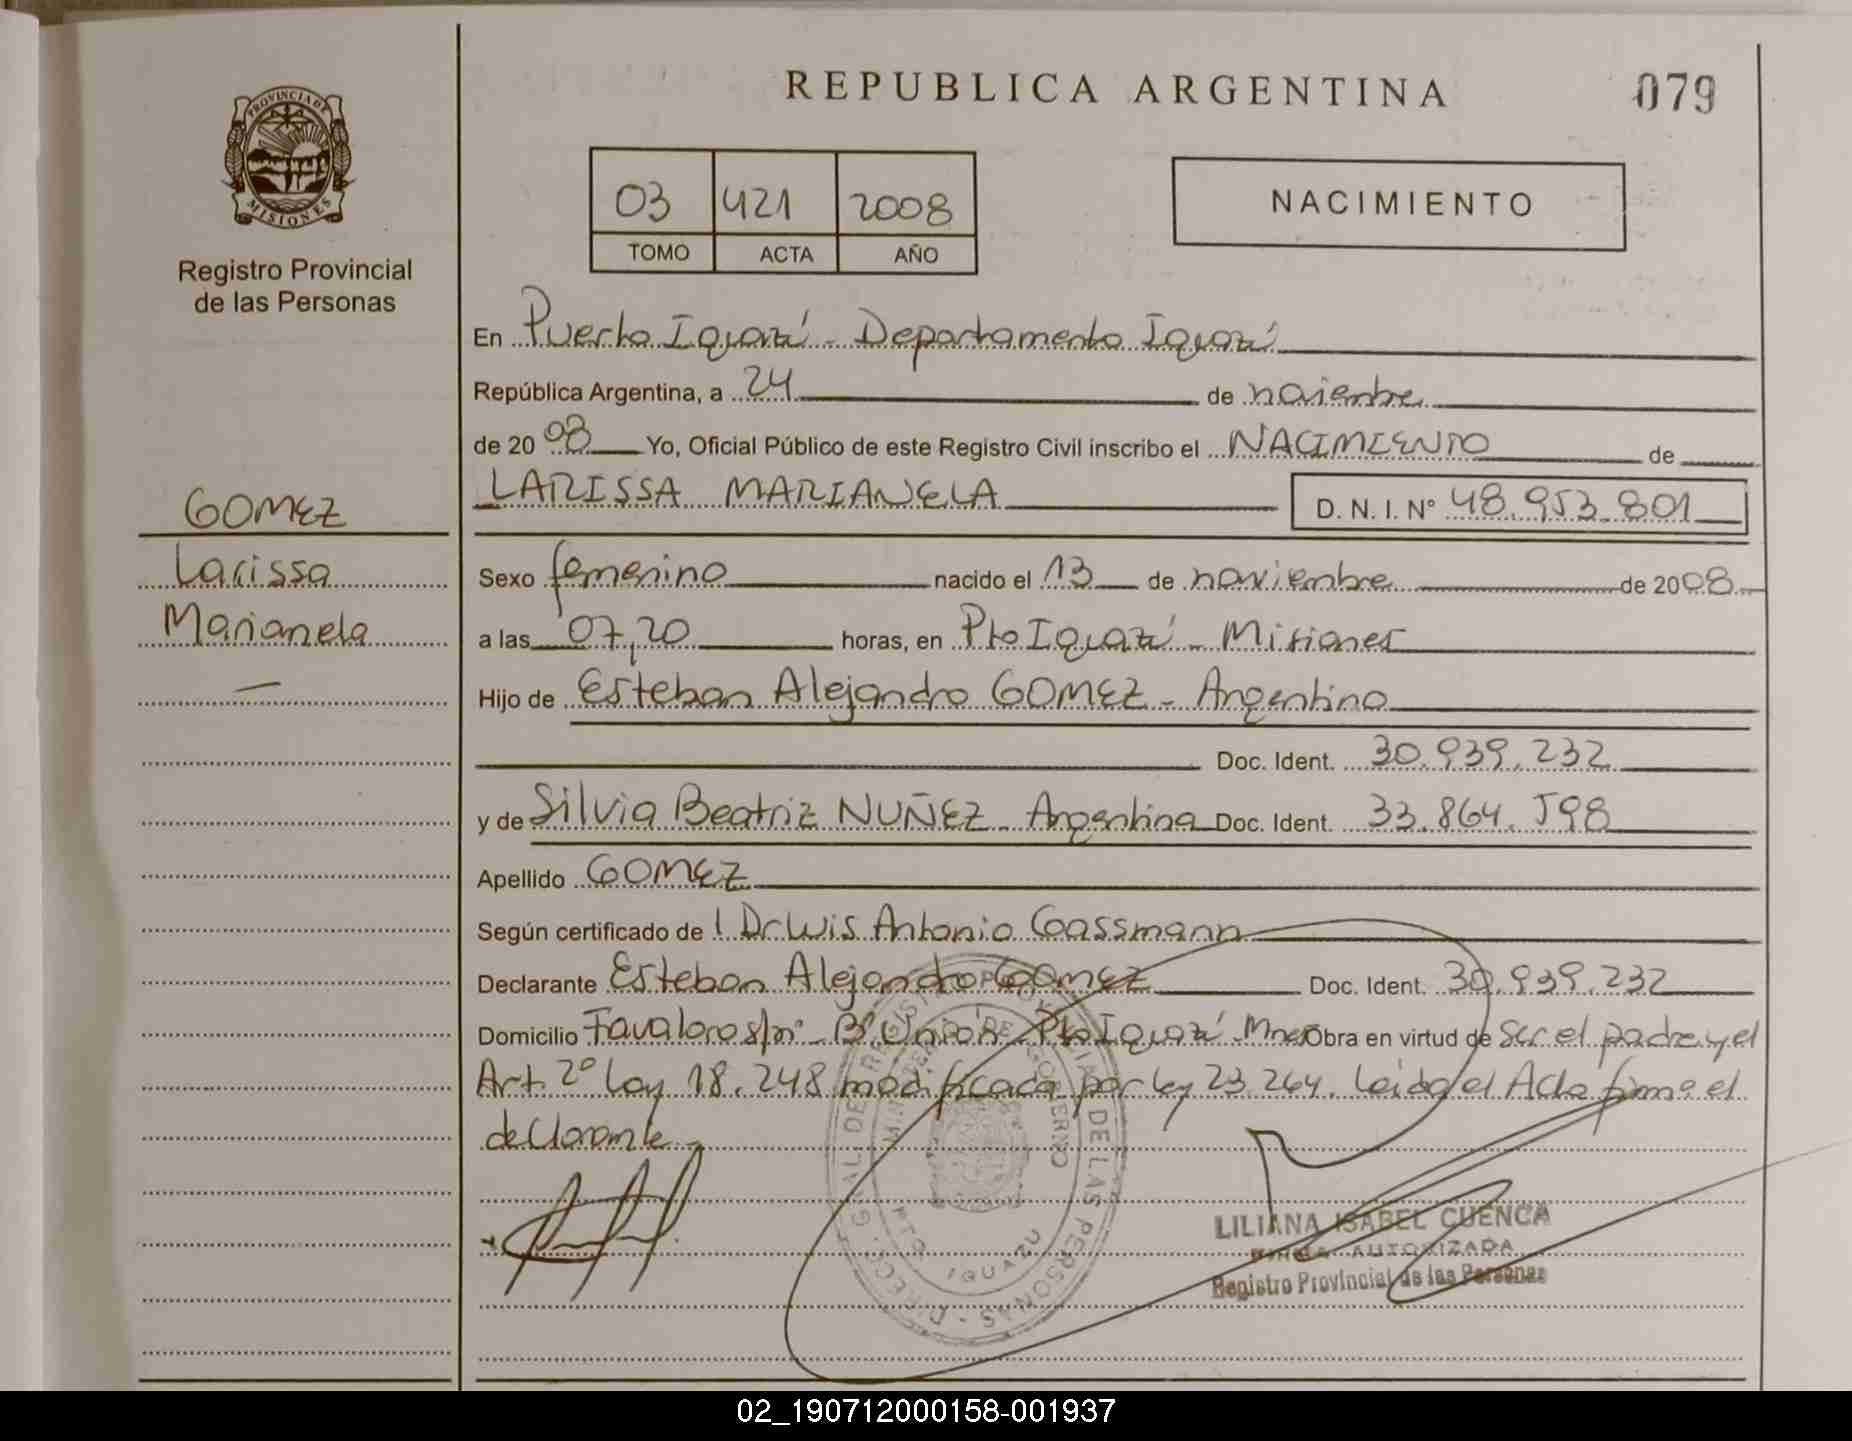 REPUBLICA ARGENTINA
079
PROVINCIA DE MISIONES
Registro Provincial
de las Personas
03 421 2008
TOMO ACTA AÑO
NACIMIENTO
En Puerto Iguazú - Departamento Iguazú
República Argentina, a 24 de noviembre
de 20 08 Yo, Oficial Público de este Registro Civil inscribo el NACIMIENTO de
LARISSA MARIANELA D. N. I. N° 48.953.801
GOMEZ
Larissa
Marianela
Sexo femenino nacido el 13 de noviembre de 2008
a las 07,20 horas, en Pto Iguazú - Misiones
Hijo de Esteban Alejandro GOMEZ - Argentino
Doc. Ident. 30.939.232
y de Silvia Beatriz NUÑEZ - Argentina Doc. Ident. 33.864.598
Apellido GOMEZ
Según certificado de Dr Luis Antonio Gassmann
Declarante Esteban Alejandro GOMEZ Doc. Ident. 30.939.232
Domicilio Favaloro s/nº - Bº Unión - Pto Iguazú - Mnes Obra en virtud de ser el padre y el
Art. 2º Ley 18.248 modificada por ley 23.264. Leida el Acta firma el
declarante -
DIRECC. GRAL DE REGISTRO PROVINCIAL DE LAS PERSONAS
MINISTERIO DE GOBIERNO
PTO IGUAZU
LILIANA ISABEL CUENCA
FIRMA AUTORIZADA
Registro Provincial de las Personas
02_190712000158-001937